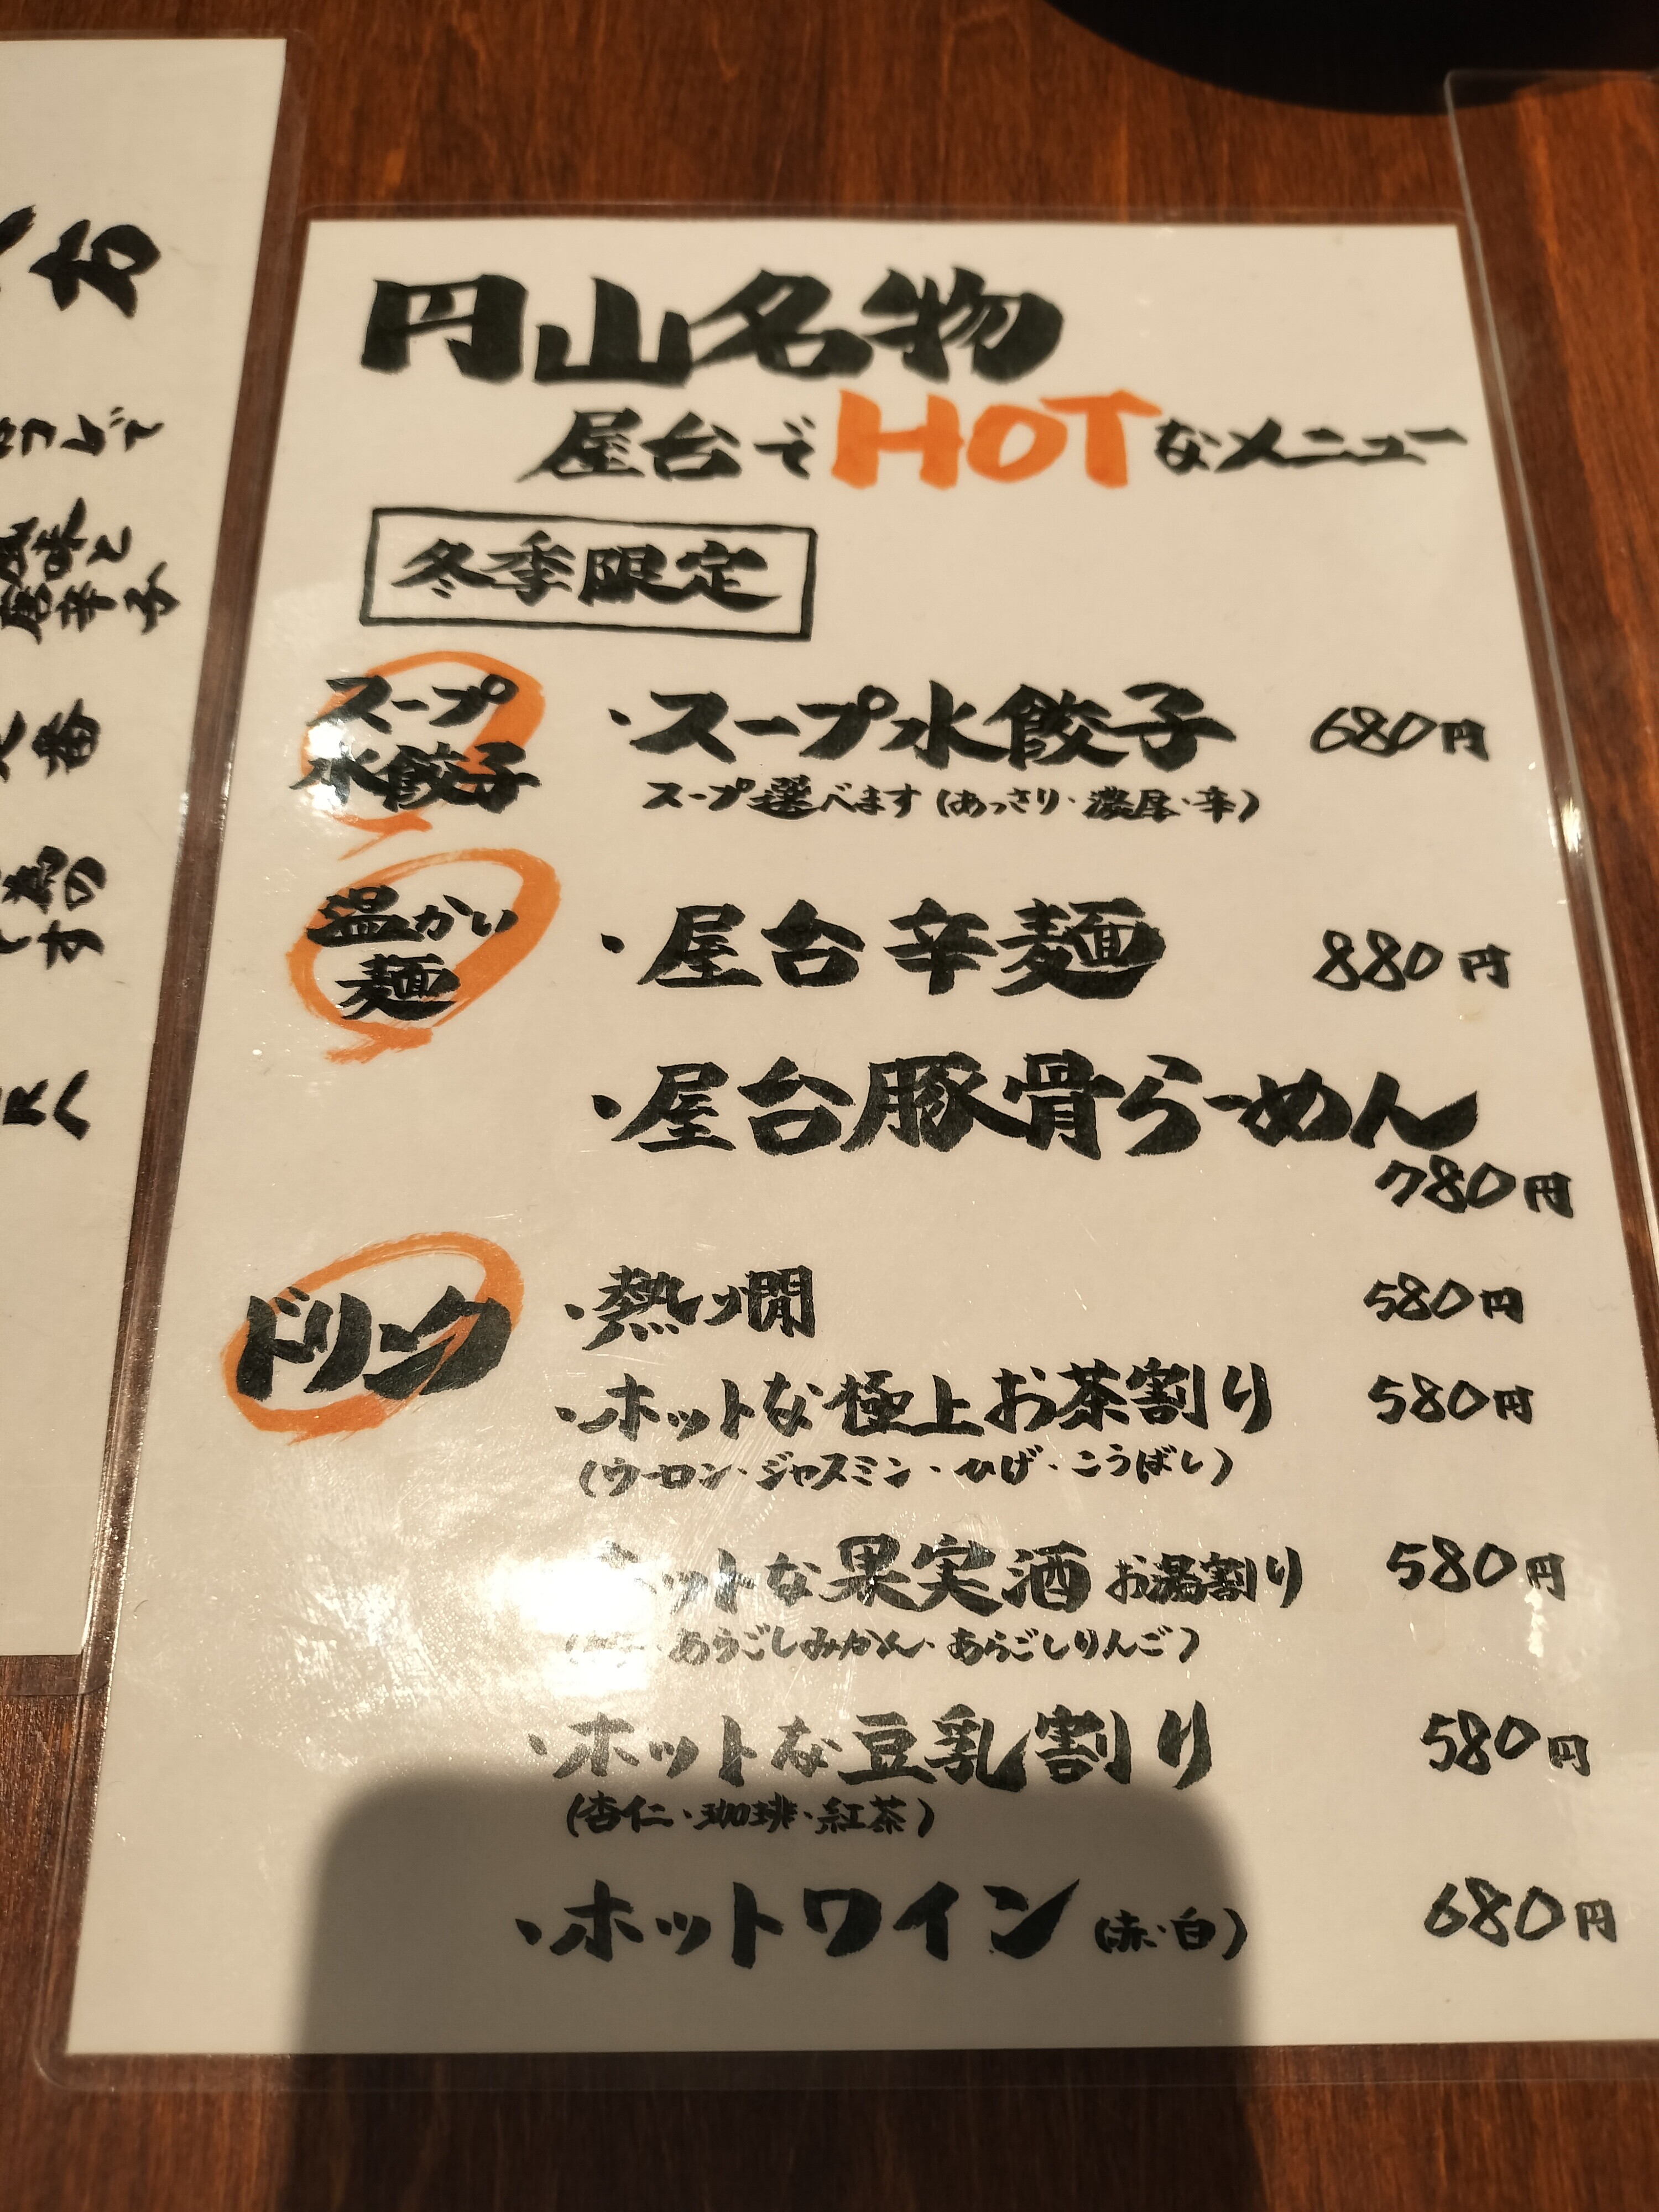 円山名物
屋台でHOTなメニュー
冬季限定
スープ
水餃子
・スープ水餃子 680円
スープ選べます(あっさり・濃厚・辛)
温かい
麺
・屋台辛麺 880円
・屋台豚骨らーめん
780円
ドリンク
・熱々燗 580円
・ホットな極上お茶割り 580円
(ウーロン・ジャスミン・ひげ・こうばし)
ホットな果実酒 お湯割り 580円
あらごしみかん・あらごしりんご)
・ホットな豆乳割り 580円
(杏仁・珈琲・紅茶)
・ホットワイン(赤・白) 680円